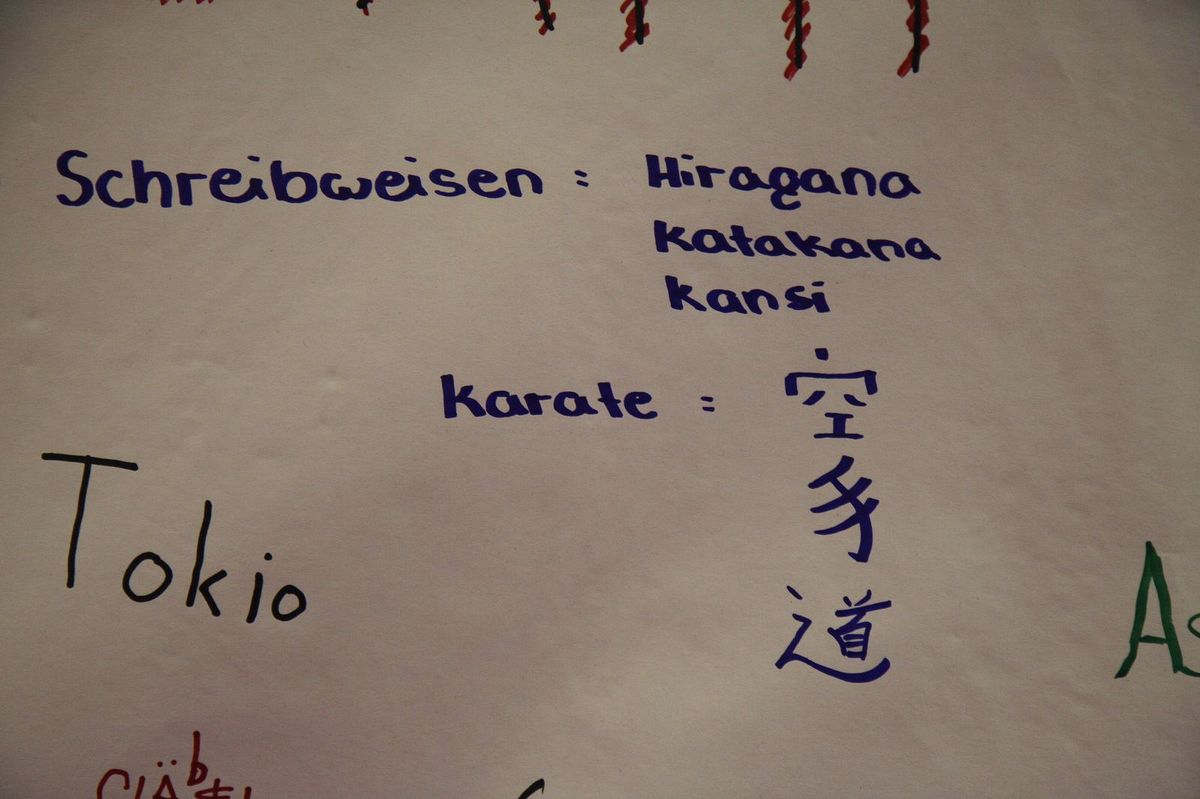 Schreibweisen : Hiragana
Katakana
Kansi
Karate : 空
手
道
Tokio